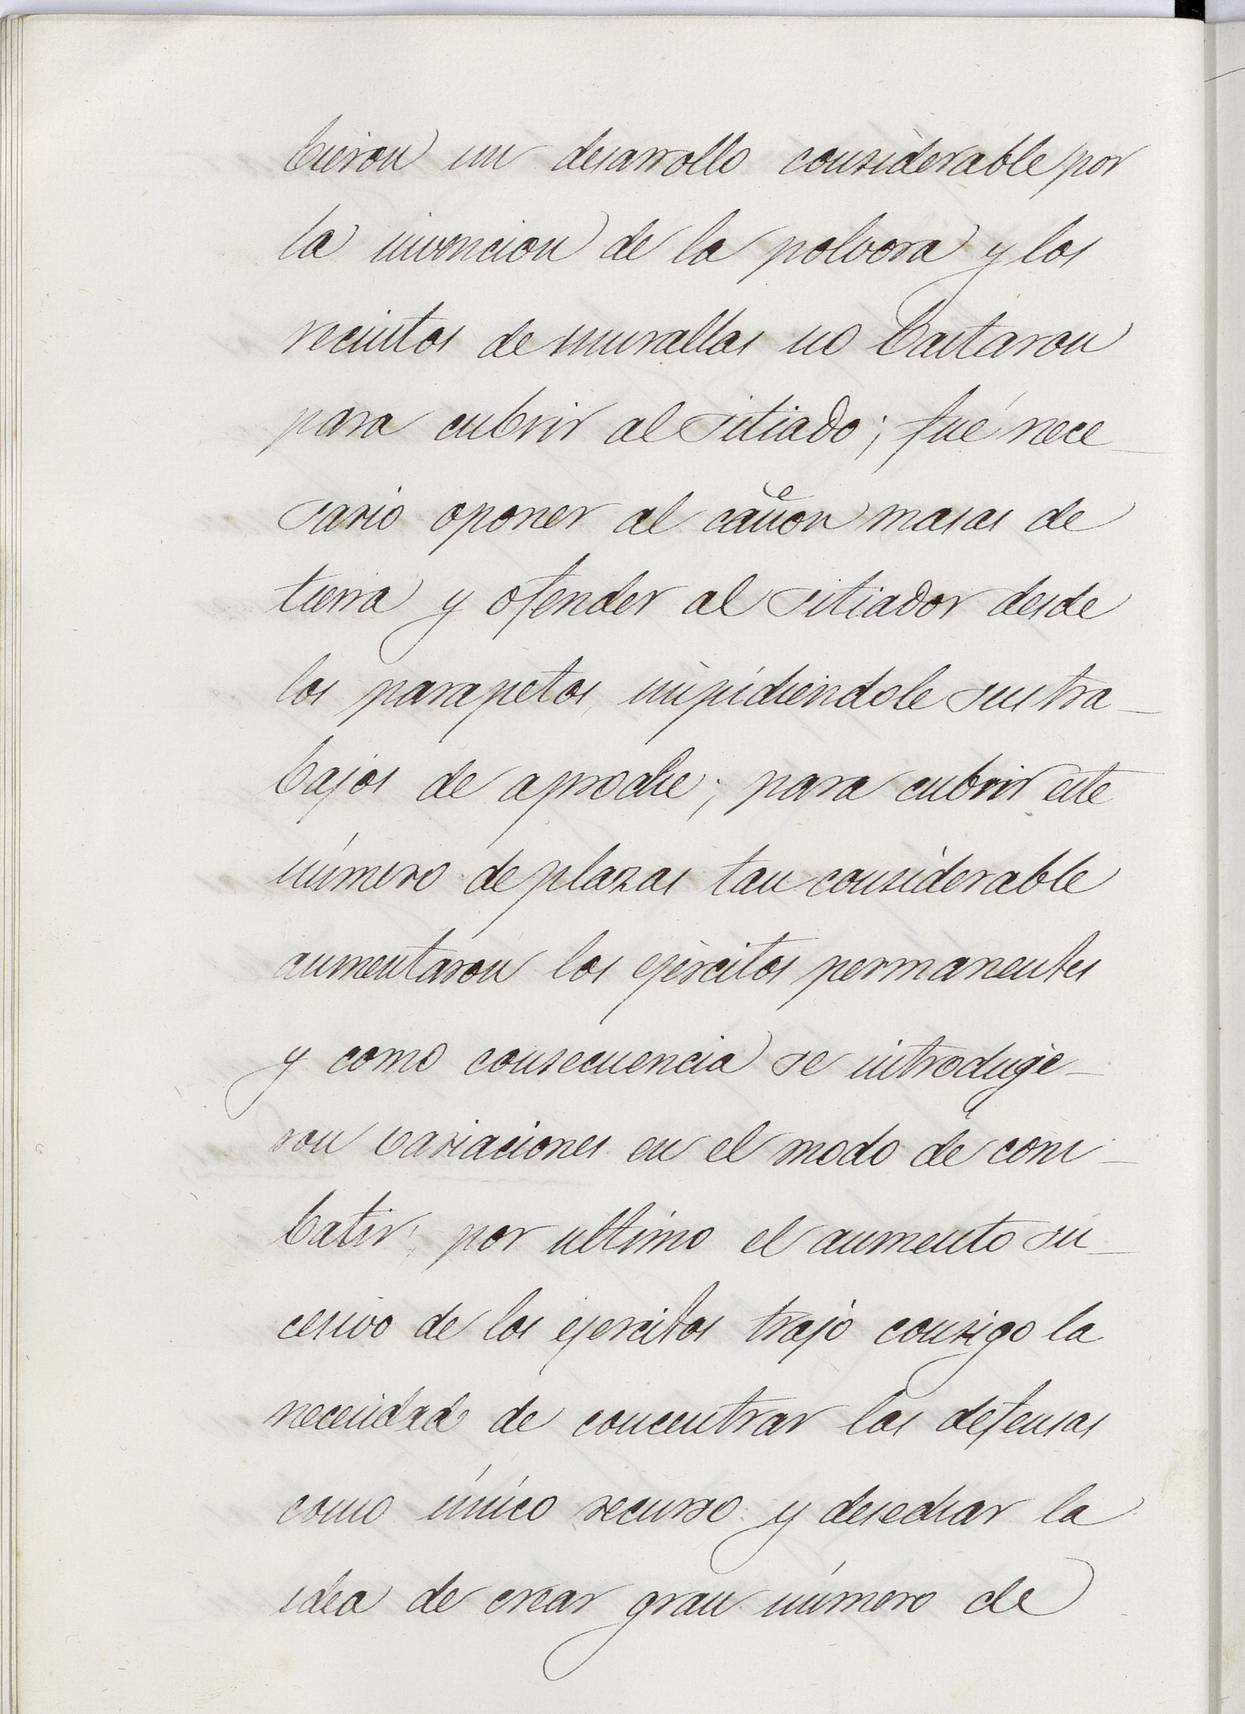 bieron un desarrollo considerable por
la invencion de la polvora y los
recintos de murallas no bastaron
para cubrir al sitiado; fué nece-
sario oponer al cañon masas de
tierra y ofender al sitiador desde
los parapetos, impidiendole sus tra-
bajos de aproche; para cubrir este
número de plazas tan considerable
aumentaron los ejércitos permanentes
y como consecuencia se introduge-
ron variaciones en el modo de com-
batir; por ultimo el aumento su-
cesivo de los ejercitos trajo consigo la
necesidad de concentrar las defensas
como único recurso y desechar la
idea de crear gran número de